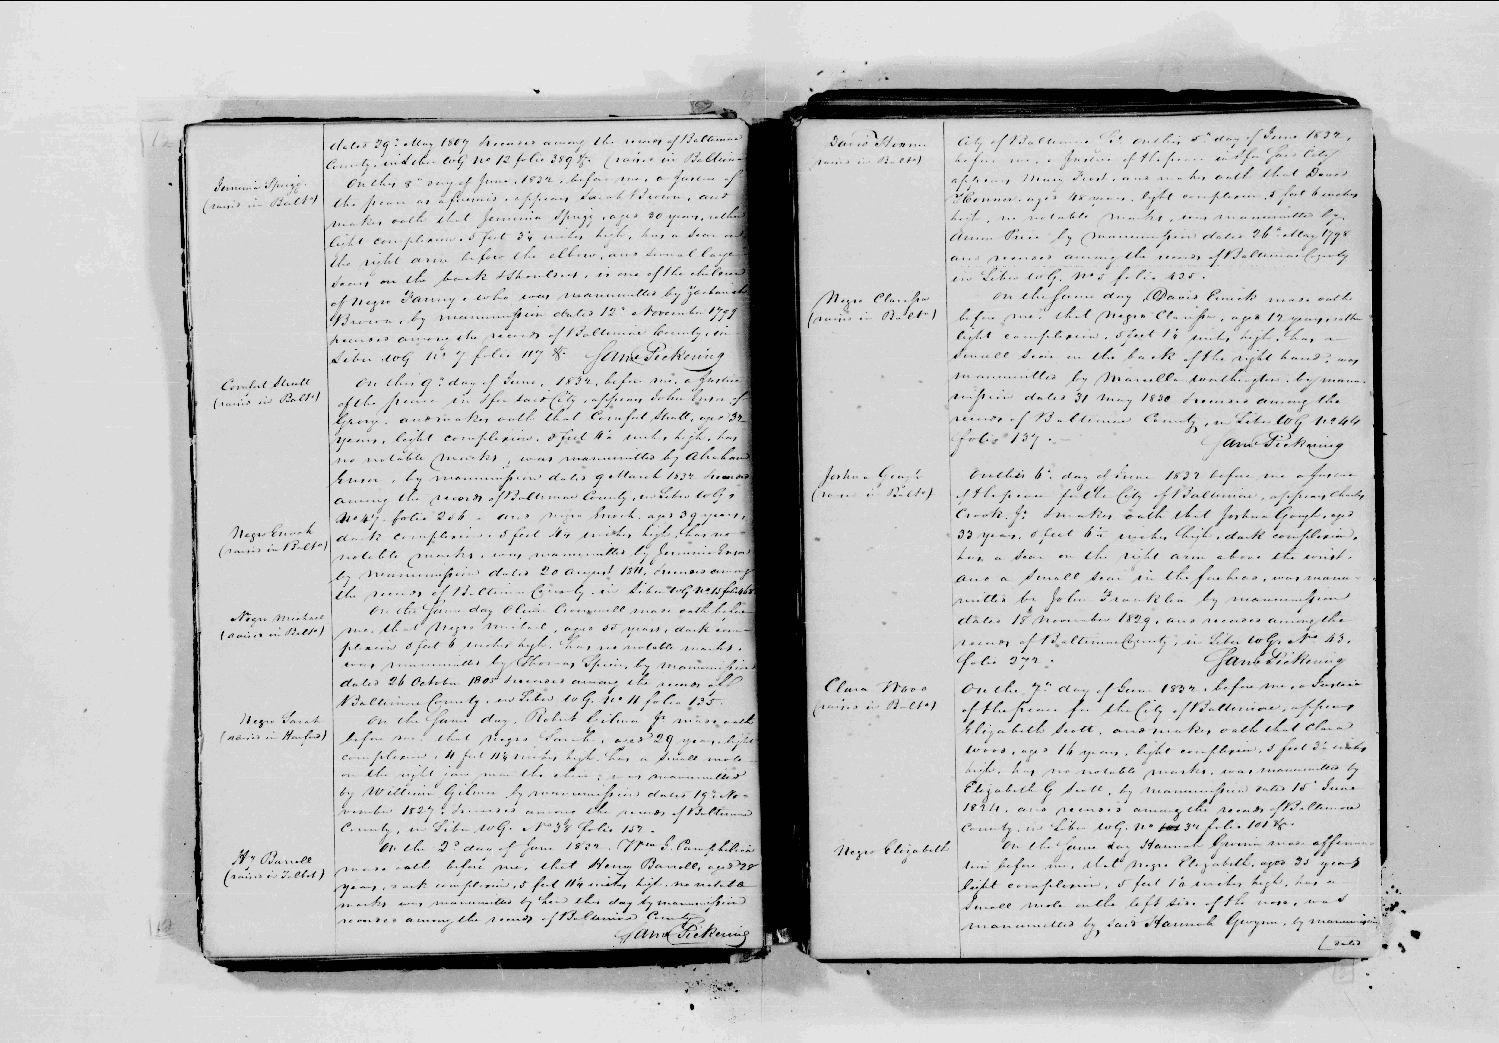 dated 29th May 1807 & recorded among the records of Baltimore
County, in Liber WG No 12 folio 389 &c. (raised in Baltimore
Jemima Sprigg
(raised in Balto)
On this 8th day of June, 1832, before me, a Justice of
the peace as aforesaid, appears Sarah Brown, and
makes oath that Jemima Sprigg, aged 30 years, rather
light complexion, 5 feet 3 1/4 inches high, has a scar on
the right arm before the elbow, and several large
scars on the back & shoulders, is one of the children
of Negro Fanny, who was manumitted by Zachariah
Brown, by manumission dated 12th November 1799
recorded among the records of Baltimore County, in
Liber WG No 7 folio 117 &c. Saml Pickering
(raised in Balto)
On this 9th day of June, 1832, before me, a Justice
of the peace in & for said City, appears John Ensor of
Geo. and makes oath that aged 32
years, light complexion, 5 feet inches high, has
no notable marks, was manumitted by Abraham
Ensor, by manumission dated 9 March 1832 & recorded
among the records of Baltimore County, in Liber WG
No 47 folio 206 - and Negro Enoch, aged 39 years,
Negro Enoch
(raised in Balto)
dark complexion, 5 feet 4 1/4 inches high, has no
notable marks, was manumitted by Jemima Ensor
by manumission dated 20 August 1811, & recorded among
the records of Baltimore County, in Liber WG No folio
Negro Michael
(raised in Balto)
On the same day Oliver Cromwell made oath before
me, that Negro Michael, aged 55 years, dark com-
plexion 5 feet 6 inches high, has no notable marks,
was manumitted by Thomas by manumission
dated 26 October 1805 & recorded among the records of
Baltimore County, in Liber WG No 11 folio 135.
Negro Sarah
(raised in Harford)
On the same day, Robert Gilmor Jr made oath
before me that Negro Sarah, aged 29 years, light
complexion, 4 feet 11 1/4 inches high, has a small mole
on the right jaw near the chin; was manumitted
by William Gilmor by manumission dated 19th No-
vember 1827, & recorded among the records of Baltimore
County, in Liber WG. No 38 folio 157.
Hy Barroll
(raised in Talbot)
On the 2d day of June 1832 Wm L Campbell
made oath before me, that Henry Barroll, aged 28
years, dark complexion, 5 feet 11 1/4 inches high, no notable
marks was manumitted by him this day by manumission
recorded among the records of Baltimore County
Saml Pickering
David
(raised in Balto)
City of Baltimore, Sc. On this 5th day of June 1832,
before me, a Justice of the peace in & for said City
appears Mary Frost, and makes oath that David
aged 48 years, light complexion, 5 feet 6 inches
high, no notable marks, was manumitted by
Price by manumission dated 26th May 1798
and recorded among the records of Baltimore County
in Liber WG. No 5 folio 425.
Negro Clarissa
(raised in Balto)
On the same day, David made oath
before me, that Negro Clarissa, aged 17 years, rather
light complexion, 5 feet 1 1/4 inches high, has a
small scar on the back of the right hand; was
manumitted by Marcella Worthington, by manu-
mission dated 31 May 1830 & recorded among the
records of Baltimore County, in Liber WG No 44
folio 137.
Saml Pickering
Joshua Gough
(raised in Balto)
On this 6th day of June 1832 before me a Justice
of the peace for the City of Baltimore, appears Charles
Crook Jr & makes oath that Joshua Gough, aged
33 years, 5 feet 6 1/4 inches high, dark complexion,
has a scar on the right arm above the wrist,
and a small scar in the forehead, was manu-
mitted by John Franklin by manumission
dated 18 November 1829, and recorded among the
records of Baltimore County, in Liber WG. No 43.
folio 272. Saml Pickering
Clara Wood
(raised in Balto)
On the 7th day of June 1832, before me, a Justice
of the peace for the City of Baltimore, appears
Elizabeth Scott, and makes oath that Clara
Wood, aged 16 years, light complexion, 5 feet inches
high, has no notable marks, was manumitted by
Elizabeth G Scott, by manumission dated 15th June
1824, and recorded among the records of Baltimore
County in Liber WG. No 34 folio 101 &c.
Negro Elizabeth
On the same day Hannah Gwinn made affirma-
tion before me, that Negro Elizabeth, aged 35 years,
light complexion, 5 feet 1 1/2 inches high, has a
small mole on the left side of the nose, was
manumitted by said Hannah Gwynn, by manumission
dated